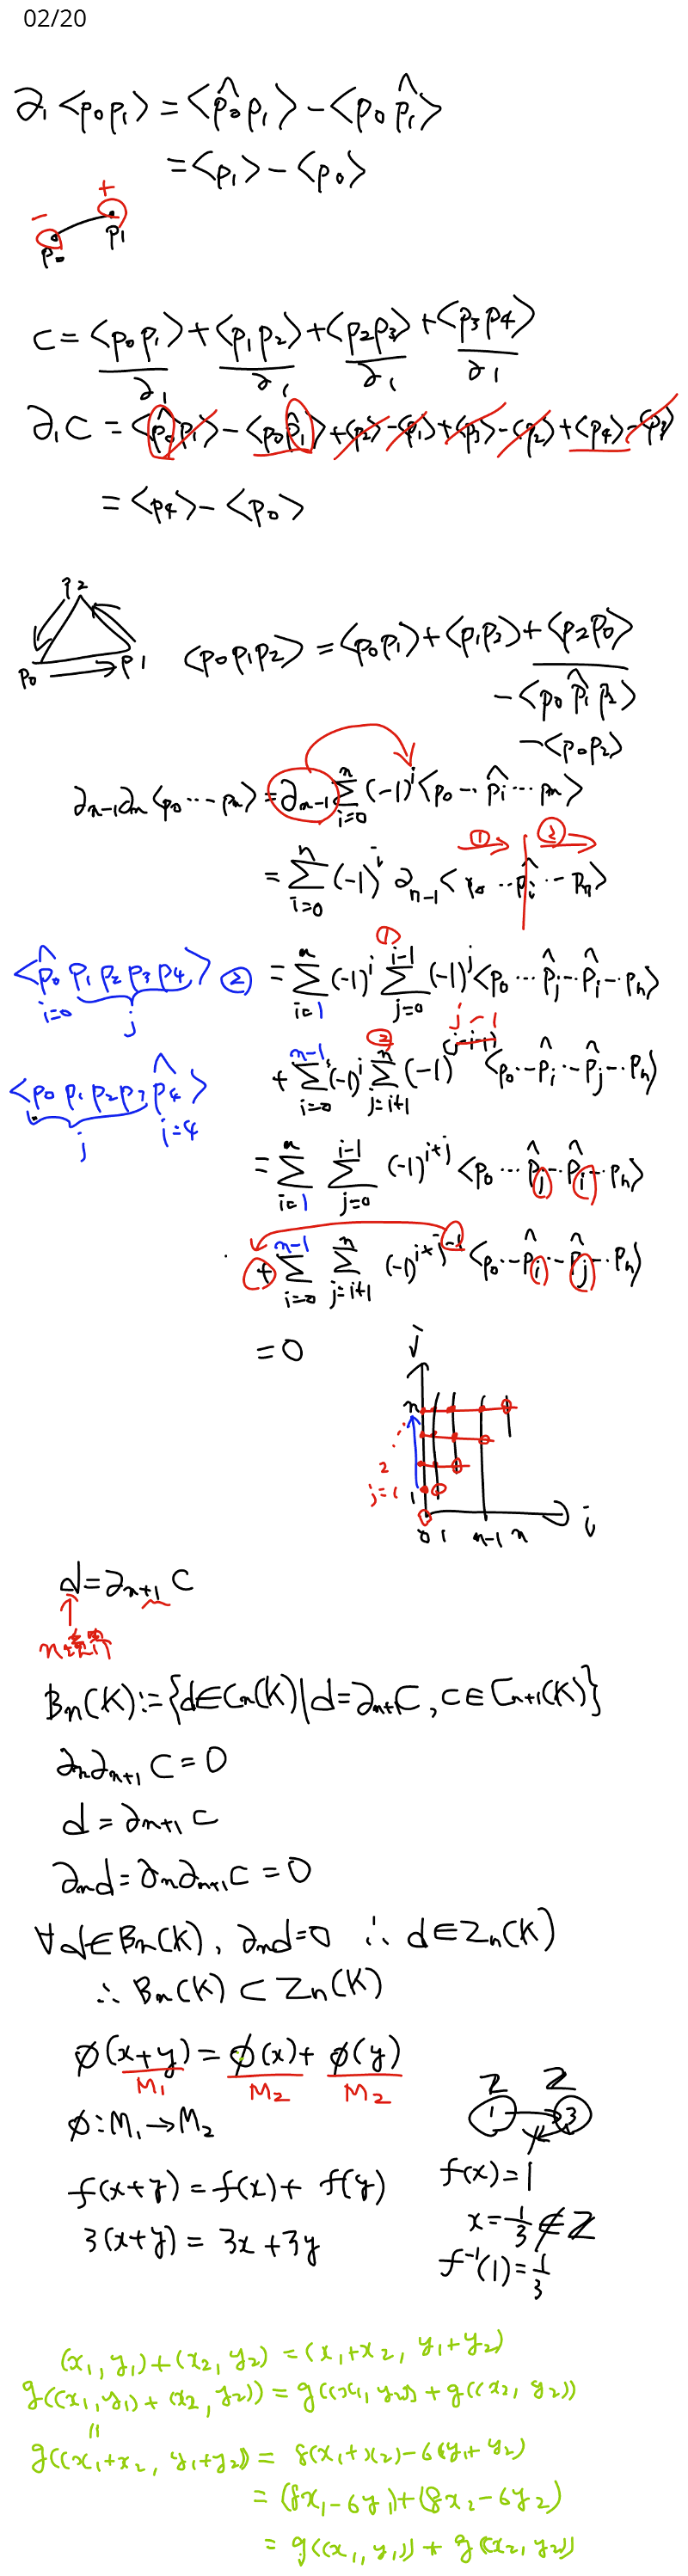 02/20
∂₁<p₀p₁> = <p̂₀p₁> - <p₀p̂₁>
= <p₁> - <p₀>
- +
p₀ p₁
c = <p₀p₁> + <p₁p₂> + <p₂p₃> + <p₃p₄>
∂₁ ∂₁ ∂₁ ∂₁
∂₁c = <p̂₀p₁> - <p₀p̂₁> + <p₂> - <p₁> + <p₃> - <p₂> + <p₄> - <p₃>
= <p₄> - <p₀>
p₂
p₀ p₁
<p₀p₁p₂> = <p₀p₁> + <p₁p₂> + <p₂p₀>
- <p₀p̂₁p₂>
- <p₀p₂>
∂ₙ₋₁∂ₙ<p₀⋯pₙ> = ∂ₙ₋₁ Σ_{i=0}^{n} (-1)^i <p₀⋯p̂ᵢ⋯pₙ>
① ②
= Σ_{i=0}^{n} (-1)^i ∂ₙ₋₁<p₀⋯p̂ᵢ⋯pₙ>
<p̂₀p₁p₂p₃p₄> ②
i=0 j
①
= Σ_{i=1}^{n} (-1)^i Σ_{j=0}^{i-1} (-1)^j <p₀⋯p̂ⱼ⋯p̂ᵢ⋯pₙ>
<p₀p₁p₂p₃p̂₄>
j i=4
② j-1
+ Σ_{i=0}^{n-1} (-1)^i Σ_{j=i+1}^{n} (-1)^{(j-1)} <p₀⋯p̂ᵢ⋯p̂ⱼ⋯pₙ>
= Σ_{i=1}^{n} Σ_{j=0}^{i-1} (-1)^{i+j} <p₀⋯p̂ⱼ⋯p̂ᵢ⋯pₙ>
+ Σ_{i=0}^{n-1} Σ_{j=i+1}^{n} (-1)^{i+j-1} <p₀⋯p̂ᵢ⋯p̂ⱼ⋯pₙ>
= 0
j
n
2
j=1 1
0 1 n-1 n i
d = ∂ₙ₊₁ c
Bₙ(K) := {d∈Cₙ(K) | d = ∂ₙ₊₁c, c∈Cₙ₊₁(K)}
∂ₙ∂ₙ₊₁ c = 0
d = ∂ₙ₊₁ c
∂ₙd = ∂ₙ∂ₙ₊₁c = 0
∀d∈Bₙ(K), ∂ₙd=0 ∴ d∈Zₙ(K)
∴ Bₙ(K) ⊂ Zₙ(K)
φ(x+y) = φ(x) + φ(y)
M₁ M₂ M₂
φ: M₁ → M₂
f(x+y) = f(x) + f(y)
3(x+y) = 3x + 3y
Z Z
1 3
f(x) = 1
x = 1/3 ∉ Z
f⁻¹(1) = 1/3
(x₁, y₁) + (x₂, y₂) = (x₁+x₂, y₁+y₂)
g((x₁, y₁) + (x₂, y₂)) = g((x₁, y₁)) + g((x₂, y₂))
=
g((x₁+x₂, y₁+y₂)) = 8(x₁+x₂) - 6(y₁+y₂)
= (8x₁-6y₁) + (8x₂-6y₂)
= g((x₁, y₁)) + g((x₂, y₂))